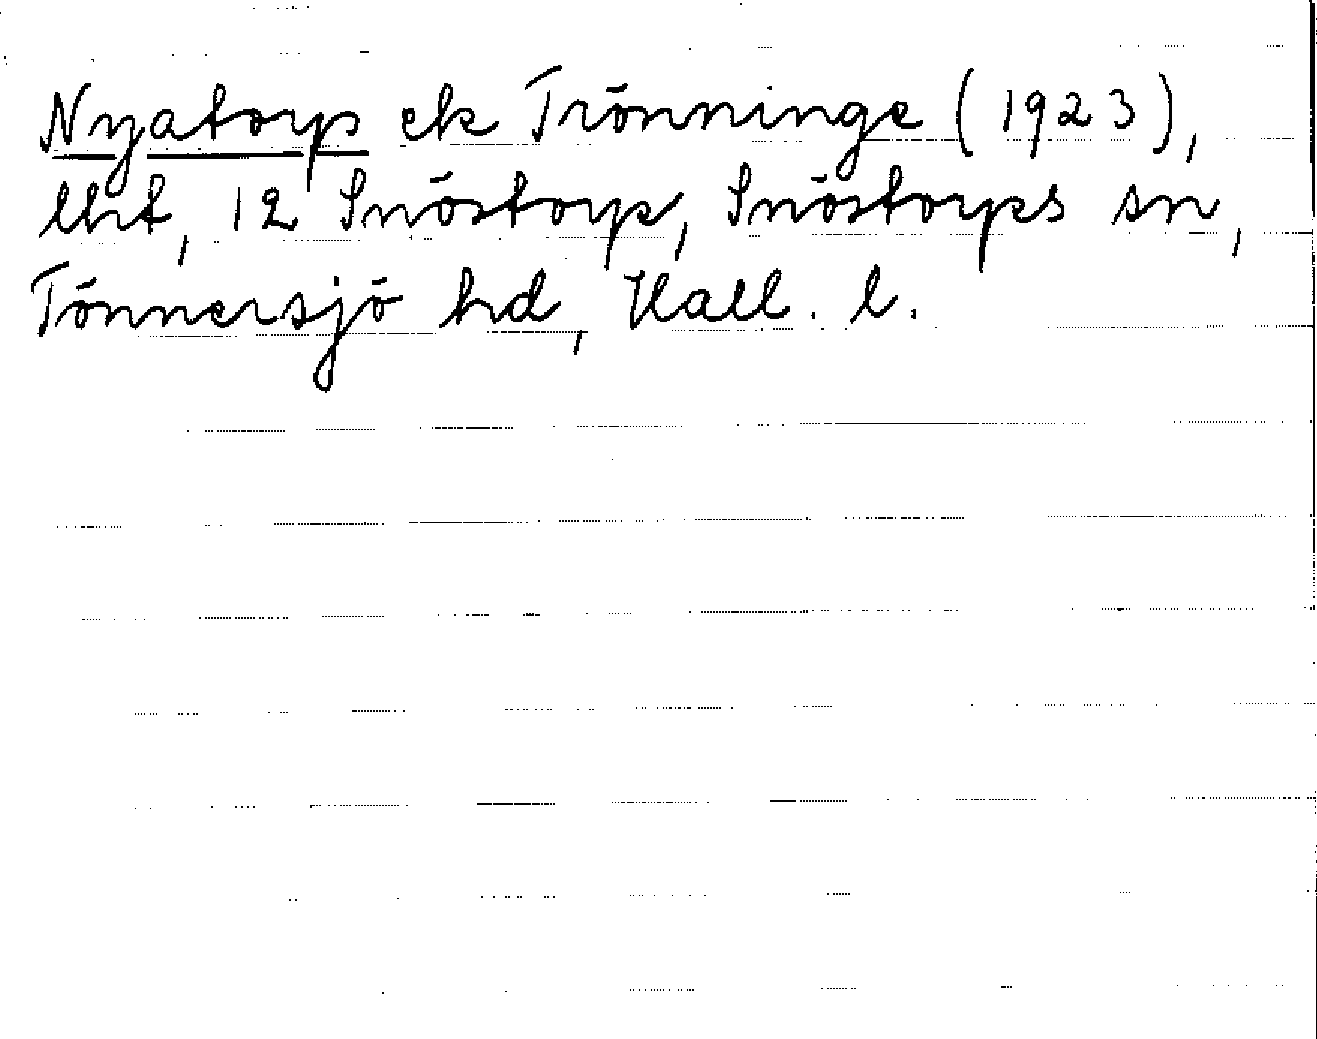 Nyatorp ek Trönninge (1923),
lht, 12 Snöstorp, Snöstorps sn,
Tönnersjö hd, Hall. l.